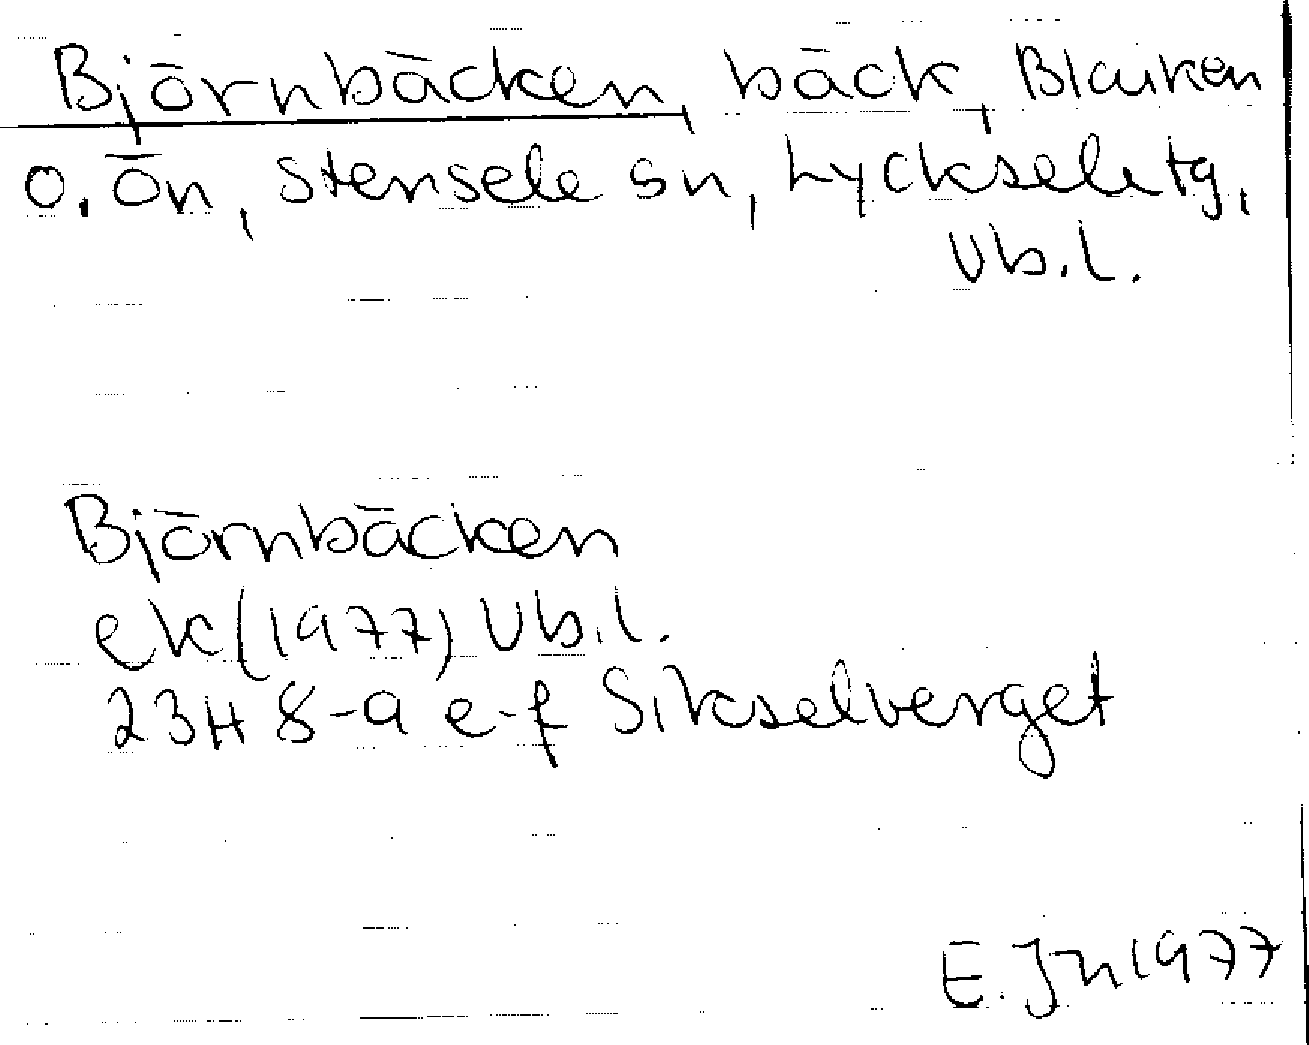 Björnbäcken, bäck, Blaiken
o. Ön, Stensele sn, Lycksele tg,
Vb.l.
Björnbäcken
ek (1977) Vb.l.
23H 8-9 e-f Sikselberget
E. Jn 1977